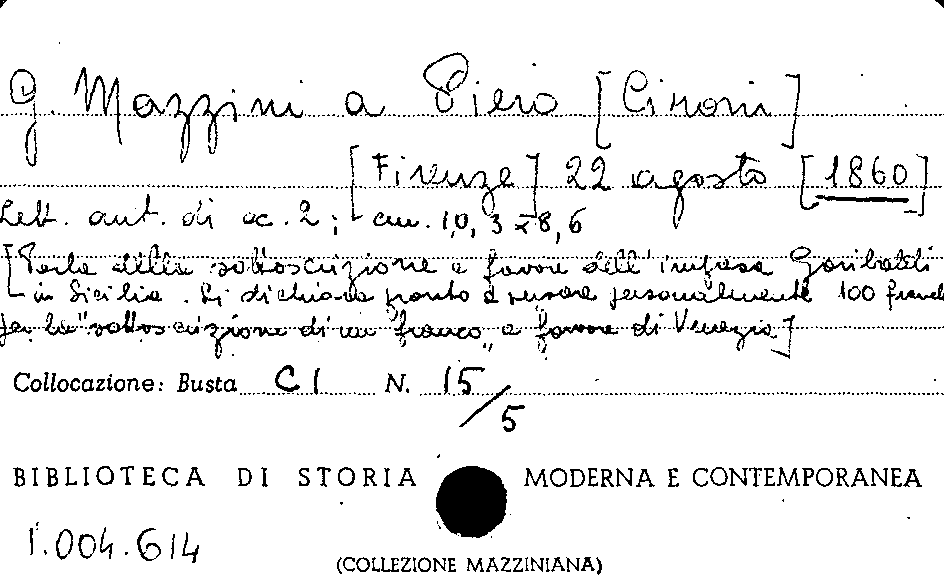 G. Mazzini a Piero [Cironi]
[Firenze] 22 agosto [1860]
Lett. aut. di cc. 2; cm. 10,3 x 8,6
[Parla della sottoscrizione a favore dell'impresa Garibaldi
in Sicilia. Si dichiara pronto a versare personalmente 100 franchi
per la "sottoscrizione di un franco" a favore di Venezia]
Collocazione: Busta C I N. 15/5
BIBLIOTECA DI STORIA MODERNA E CONTEMPORANEA
1.004.614
(COLLEZIONE MAZZINIANA)